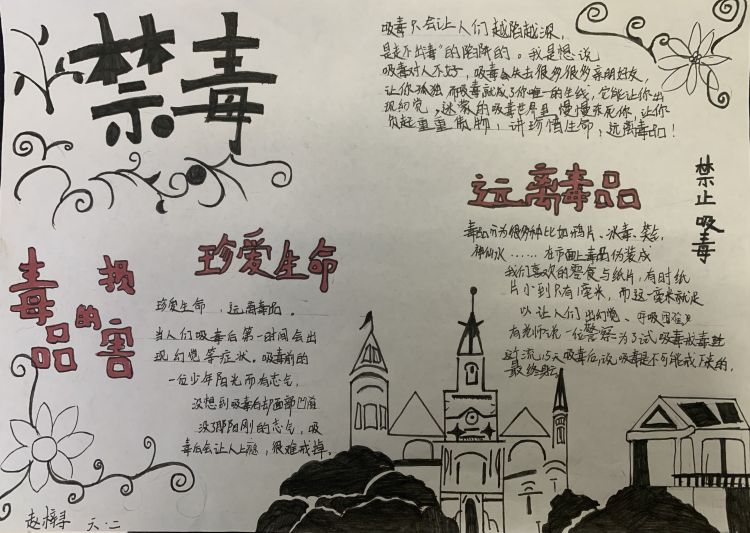 禁毒
吸毒只会让人们越陷越深,
是走不出毒"的陷阱的。我是想说
吸毒对人不好,吸毒会失去很多很多亲朋好友,
让你孤独 而吸毒就成了你唯一的生线,它能让你出
现幻觉,迷蒙的吸毒世界里 慢慢杀死你,让你
负起重重 物,讲珍惜生命,远离毒品!
禁止吸毒
远离毒品
毒品分为很多种比如鸦片、冰毒、笑气、
神仙水……在市面上毒品伪装成
我们喜欢的零食与纸片,有时纸
片小到只有1厘米,而这一厘米就足
以让人们出幻觉、呼吸困难
有老师说一位警察为了试吸毒戒毒
吸毒后,说吸毒是不可能戒下来的,
珍爱生命
珍爱生命,远离毒品。
当人们吸毒后第一时间会出
现幻觉等症状。吸毒前的
一位少年阳光而有志气,
没想到吸毒后却面部凹陷
没了那阳刚的志气,吸
毒后会让人上瘾,很难戒掉。
毒品的损害
六·二